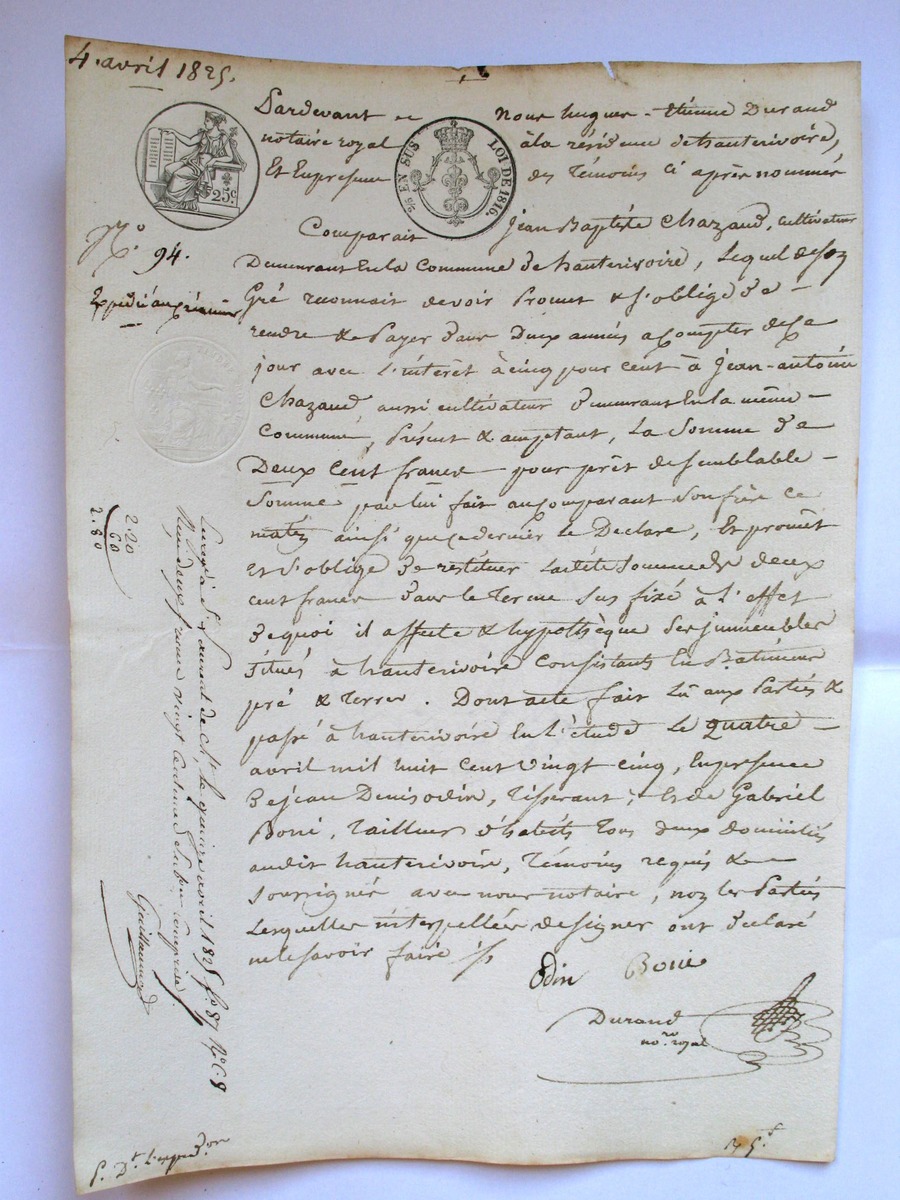 4. avril 1825.
Pardevant
Nous hugues-étienne Durand
notaire royal
à la résidence de hauterivoire,
Et En presence
des Témoins ci après nommés
25c
EN SUS
LOI DE 1816.
Comparait Jean Baptiste Chazaud, cultivateur
N.o 94.
Demeurant En la Commune de hauterivoire, Lequel de son
Gré reconnait devoir Promet & s'oblige de
rendre & Payer dans Deux années a Compter de ce
jour avec L'intérêt à cinq pour cent à Jean-antoine
Chazaud, aussi cultivateur demeurant En la même
Commune, Présent & acceptant, La Somme de
Deux Cent francs pour prêt de semblable
Somme par lui fait au comparant son frère ce
matin ainsi que ce dernier le Déclare, Et promet
et s'oblige de restituer Ladite Somme de deux
cent francs dans le Terme sus fixé à L'effet
de quoi il affecte & hypothèque ses immeubles
situés à hauterivoire Consistants En Batiments
pré & Terres. Dont acte fait Lû aux Parties &
passé à hauterivoire En L'étude Le quatre
avril mil huit Cent vingt cinq, En presence
de jean Denis odin, Tisserant, & de Gabriel
Boni, Tailleur d'habits Tous deux domiciliés
audit hauterivoire, Témoins requis &
soussignés avec nous notaire, non les Parties
Lesquelles interpellées de signer ont déclaré
ne le savoir faire
Odin Boni
Durand
no.re royal
Enregé à St Laurent de Ch. le quinze avril 1825 fo 87 Ro C. 8
Reçu deux francs vingt centimes
Guillaumond
2.20
60
2.80